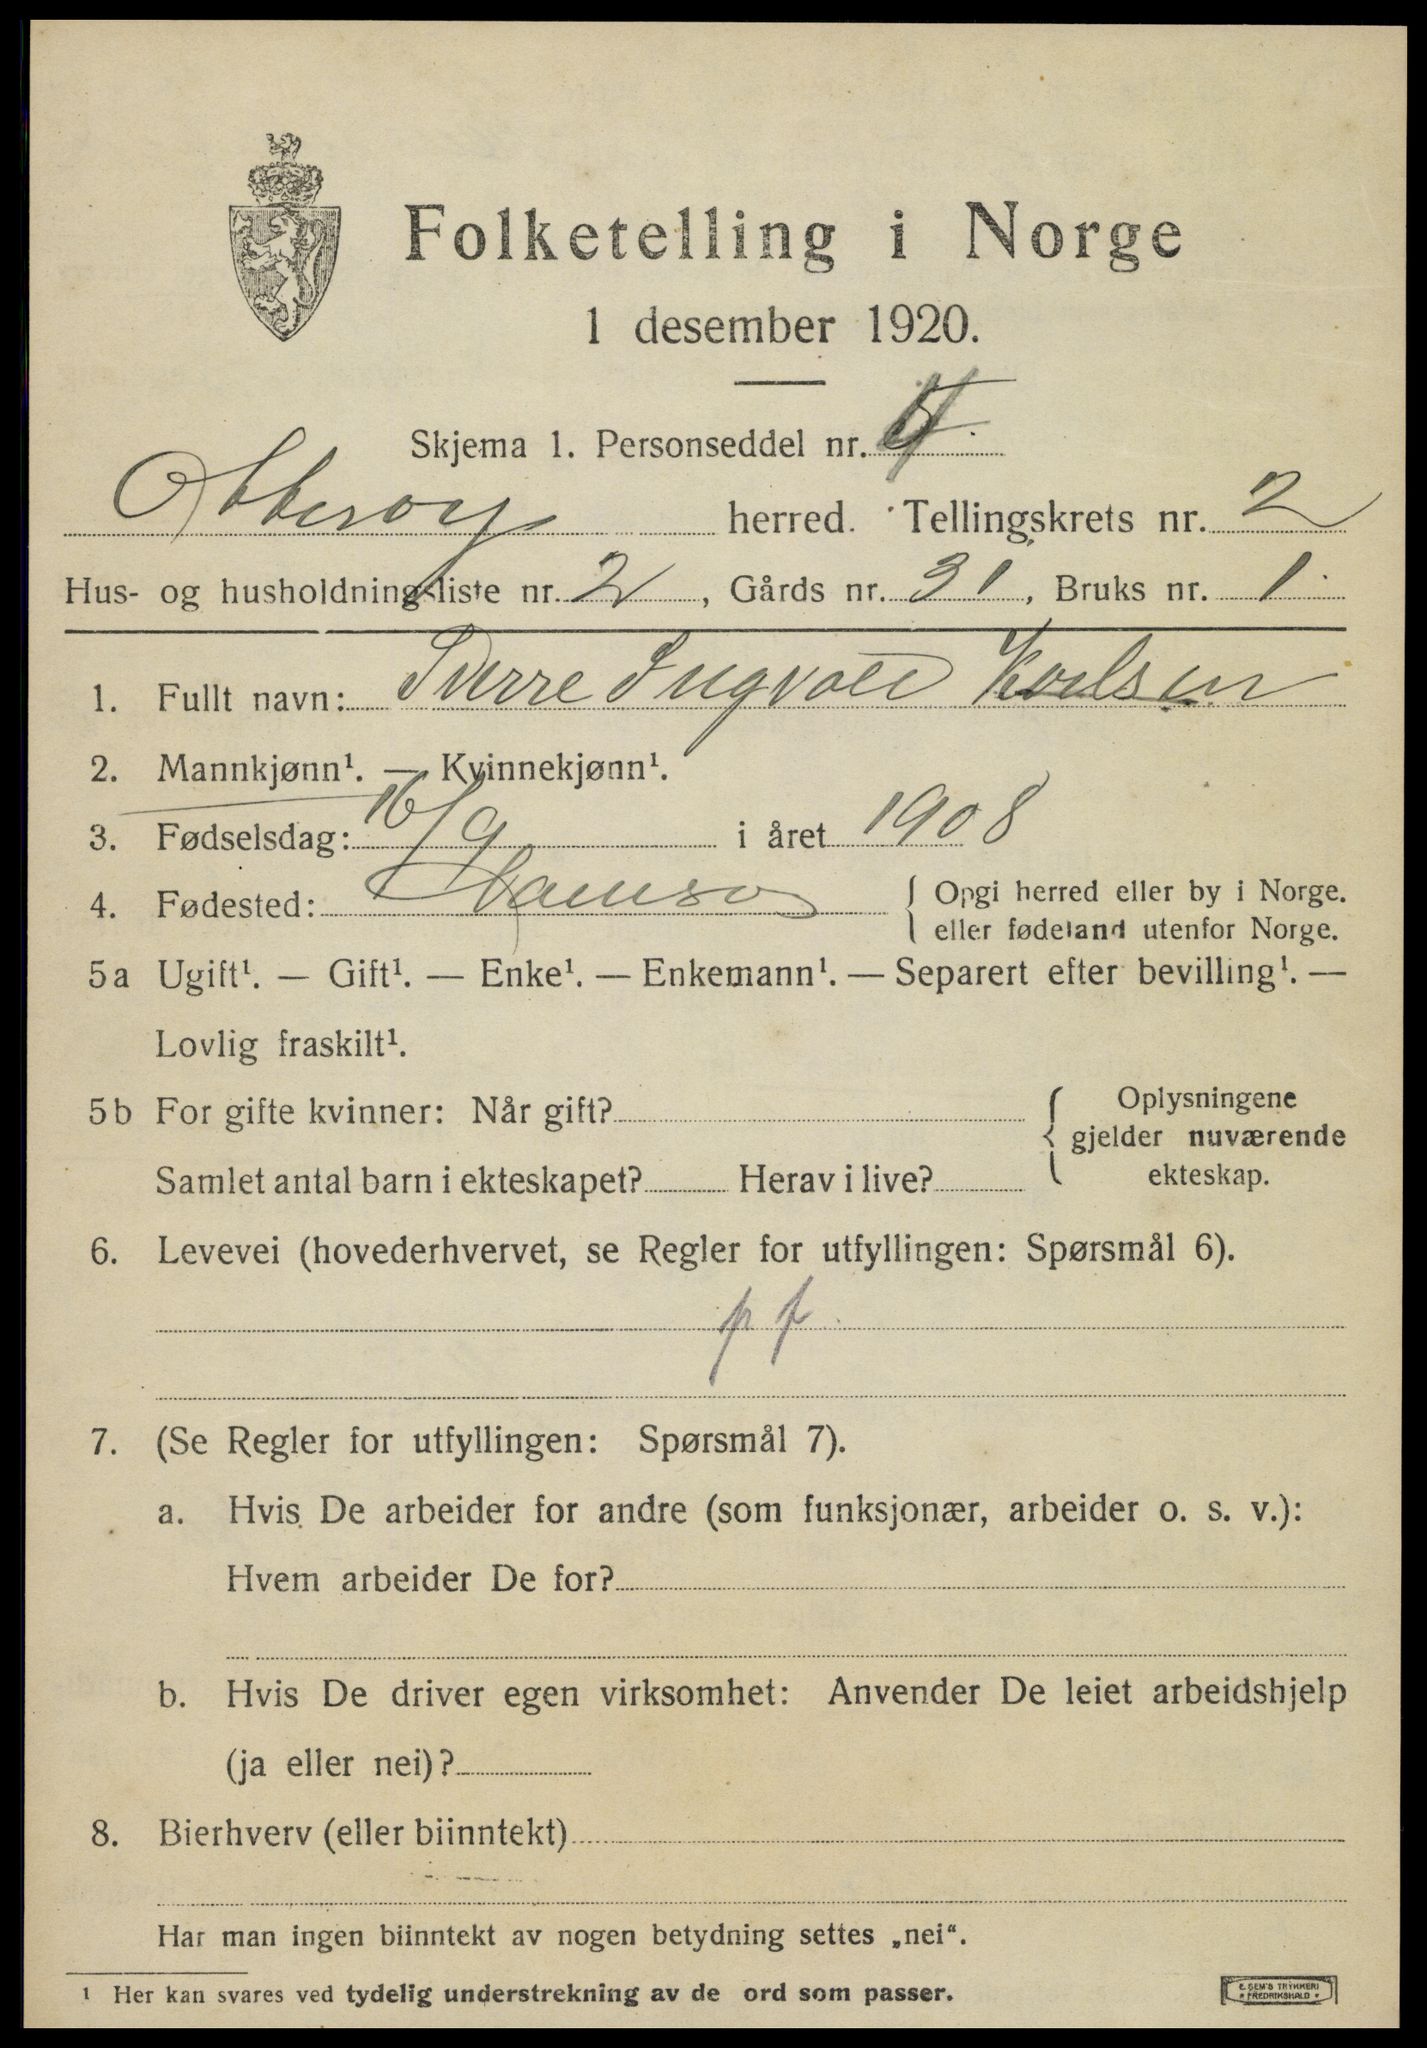 Folketelling i Norge
1 desember 1920.
Skjema 1. Personseddel nr.
Otterøy herred. Tellingskrets nr. 2
Hus- og husholdningsliste nr. 2, Gårds nr. 31, Bruks nr. 1
1. Fullt navn: Sverre Ingvald
2. Mannkjønn¹. — Kvinnekjønn¹.
3. Fødselsdag: 16/9 i året 1908
4. Fødested: Namsos { Opgi herred eller by i Norge.
eller fødeland utenfor Norge.
5a Ugift¹. — Gift¹. — Enke¹. — Enkemann¹. — Separert efter bevilling¹. —
Lovlig fraskilt¹.
5b For gifte kvinner: Når gift? { Oplysningene
gjelder nuværende
ekteskap.
Samlet antal barn i ekteskapet? Herav i live?
6. Levevei (hovederhvervet, se Regler for utfyllingen: Spørsmål 6).
p f
7. (Se Regler for utfyllingen: Spørsmål 7).
a. Hvis De arbeider for andre (som funksjonær, arbeider o. s. v.):
Hvem arbeider De for?
b. Hvis De driver egen virksomhet: Anvender De leiet arbeidshjelp
(ja eller nei)?
8. Bierhverv (eller biinntekt)
Har man ingen biinntekt av nogen betydning settes „nei“.
¹ Her kan svares ved tydelig understrekning av de ord som passer.
E. SEM'S TRYKKERI
FREDRIKSHALD